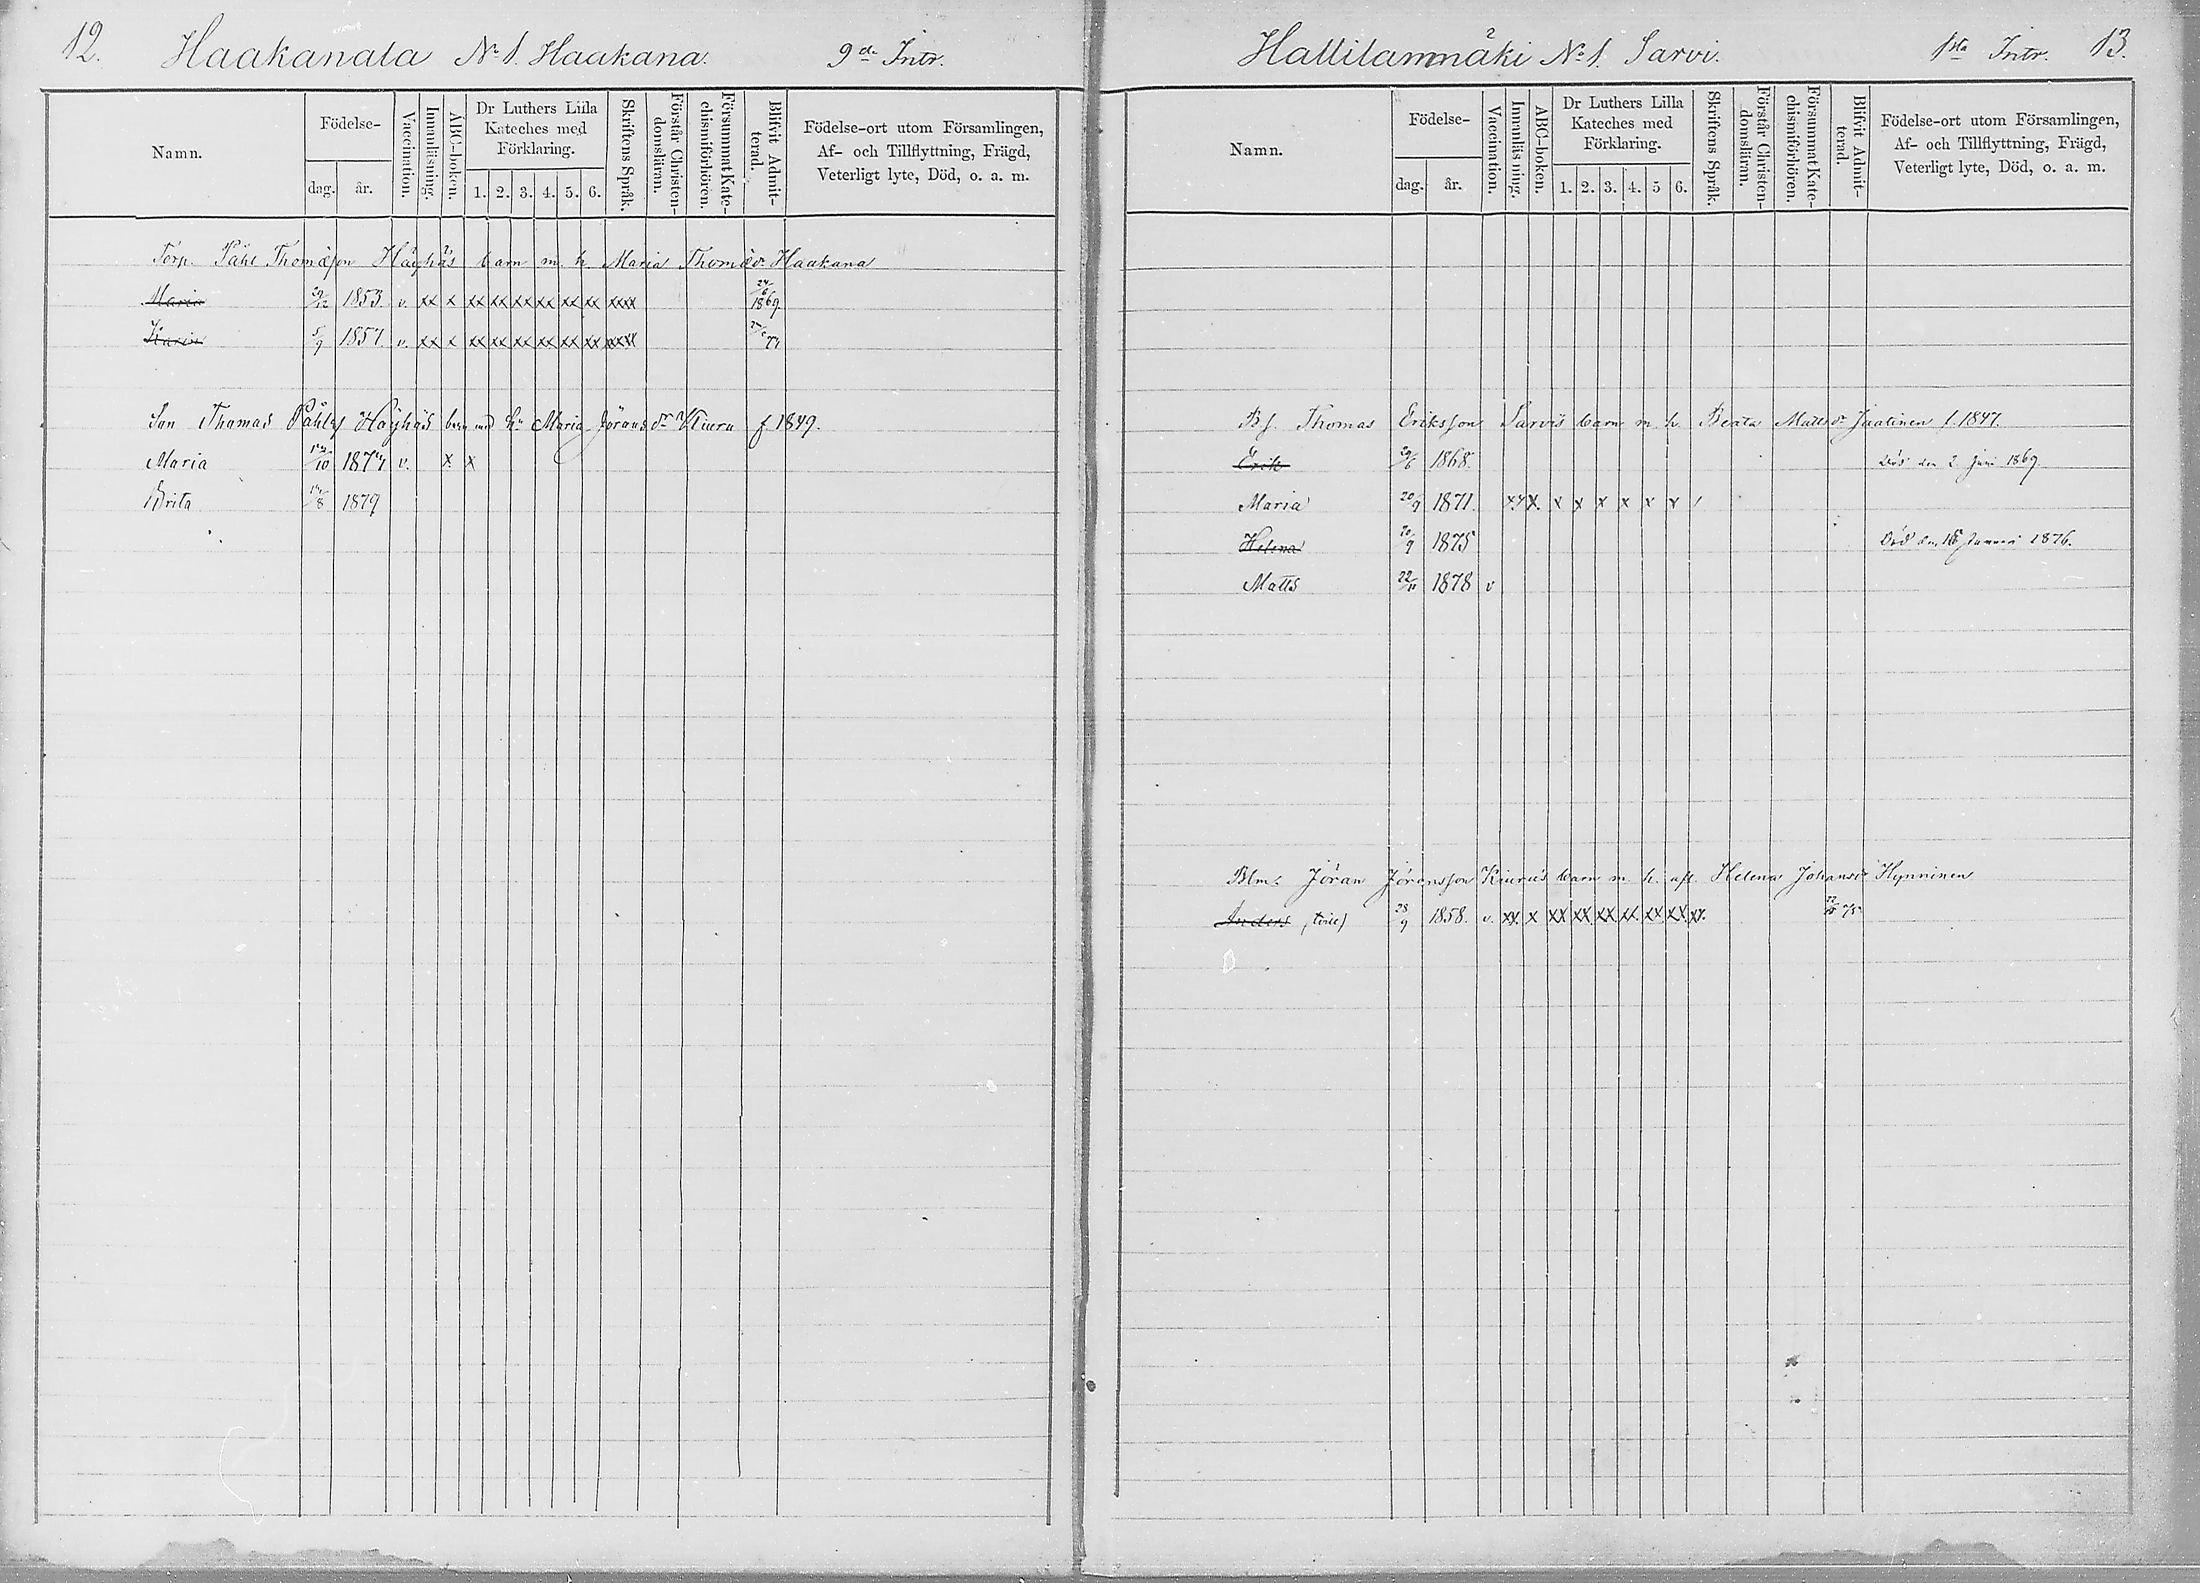 12. Haakanala No 1. Haakana. 9de Intr.
Namn.
Födelse-
dag. år.
Vaccination.
Innanläsning.
ABC-boken.
Dr Luthers Lilla
Kateches med
Förklaring.
1. 2. 3. 4. 5. 6.
Skriftens Språk.
Förstår Christen-
domsläran.
Försummat Kate-
chismiförhören.
Blifvit Admit-
terad.
Födelse-ort utom Församlingen,
Af- och Tillflyttning, Frägd,
Veterligt lyte, Död, o. a. m.
Torp. Påhl Thomasson Häyhäs barn m. h. Maria Thomasdr Haakana
Maria 29/12 1853. v. xx x xx xx xx xx xx xx xxxx 24/6 1869.
Karin 5/9 1857. v. xx x xx xx xx xx xx xx xxxx
Son Thomas Påhls Häyhäs barn med h. Maria Jöransdr Kiuru f 1849.
Maria 10 1877 v. x x
Brita 8 1879
Hallilanmäki No 1. Sarvi. 1sta Intr. 13.
Namn.
Födelse-
dag. år.
Vaccination.
Innanläsning.
ABC-boken.
Dr Luthers Lilla
Kateches med
Förklaring.
1. 2. 3. 4. 5 6.
Skriftens Språk.
Förstår Christen-
domsläran.
Försummat Kate-
chismiförhören.
Blifvit Admit-
terad.
Födelse-ort utom Församlingen,
Af- och Tillflyttning, Frägd,
Veterligt lyte, Död, o. a. m.
Thomas Eriksson Sarvis barn m. h. Beata Mattsdr Jaatinen f. 1847.
Erik 29/6 1868. Död den 2 Juni 1869
Maria 20/9 1871. xx x. x x x x x x /
Helena 20/9 1875 Död den 16 Januari 1876.
Matts 22/11 1878 v
Blm. Jöran Jöransson Kiuru's barn m. h. afl. Helena Johansdr Hynninen
Anders (tvill) 28/9 1858. v. xx. x xx xx xx xx. xx xx xx.